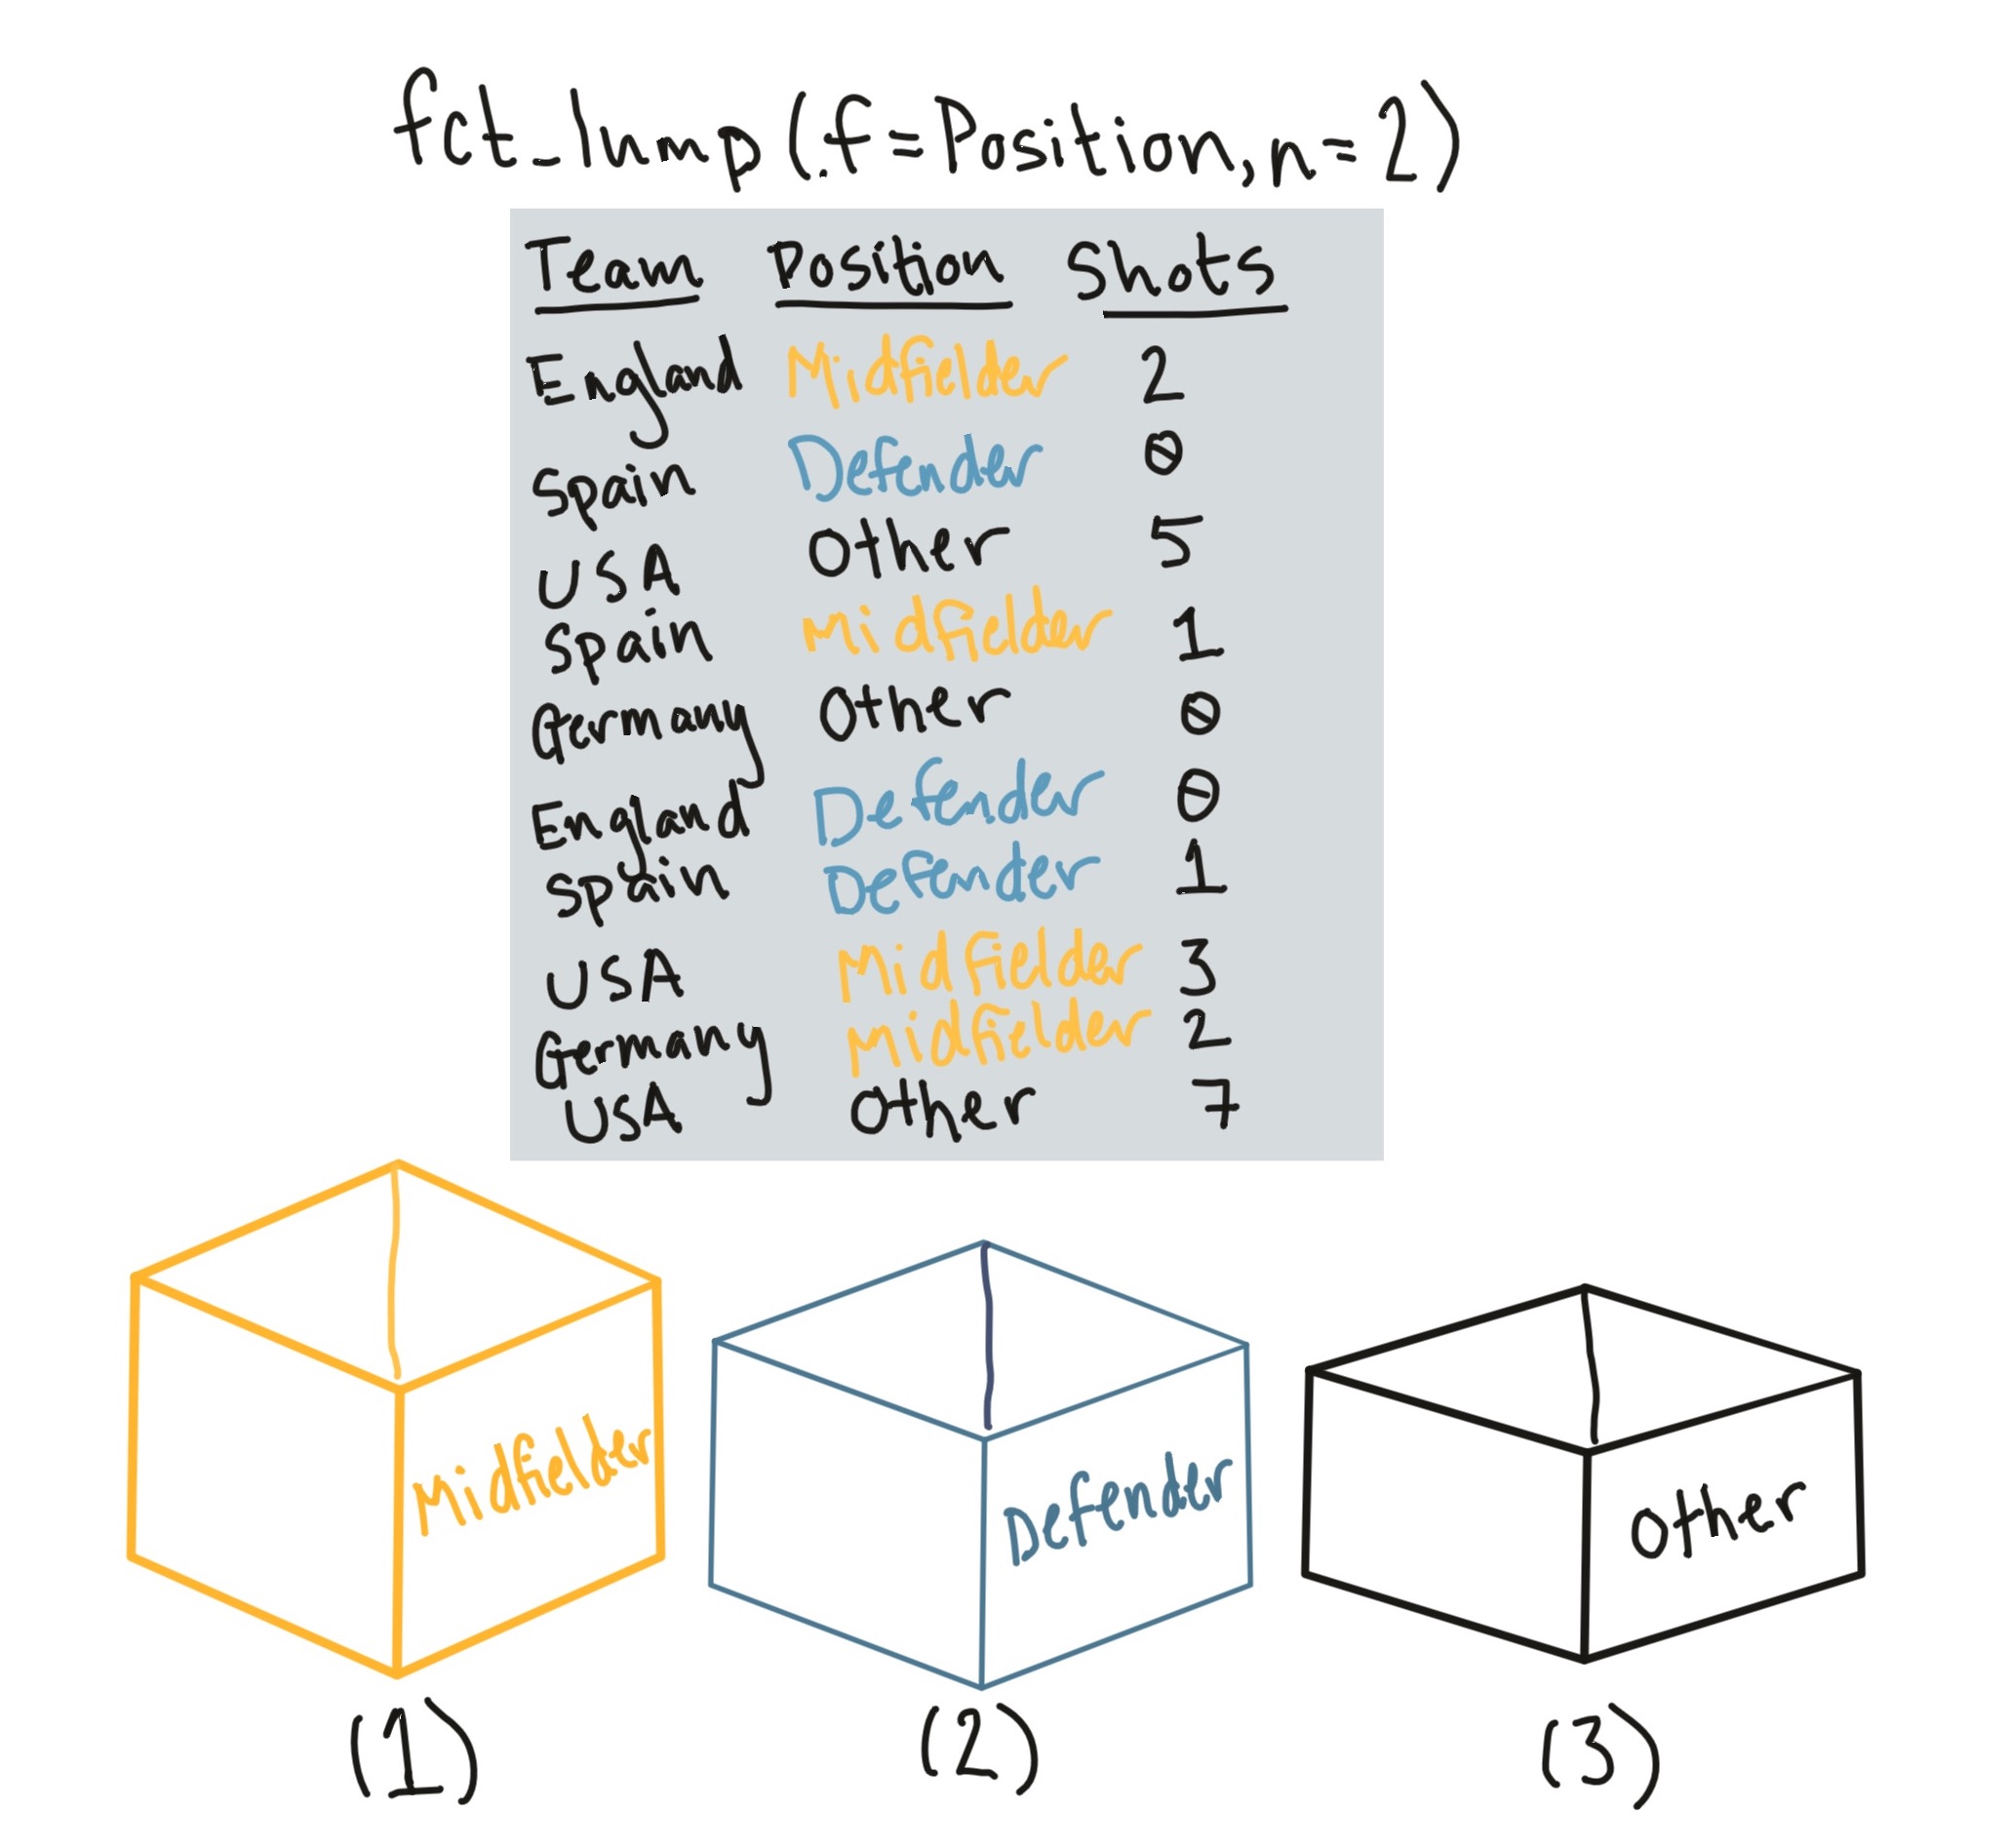 fct_lump(.f=Position,n=2)
Team Position Shots
England Midfielder 2
Spain Defender 0
USA Other 5
Spain Midfielder 1
Germany Other 0
England Defender 0
Spain Defender 1
USA Midfielder 3
Germany Midfielder 2
USA Other 7
Midfielder Defender Other
(1) (2) (3)